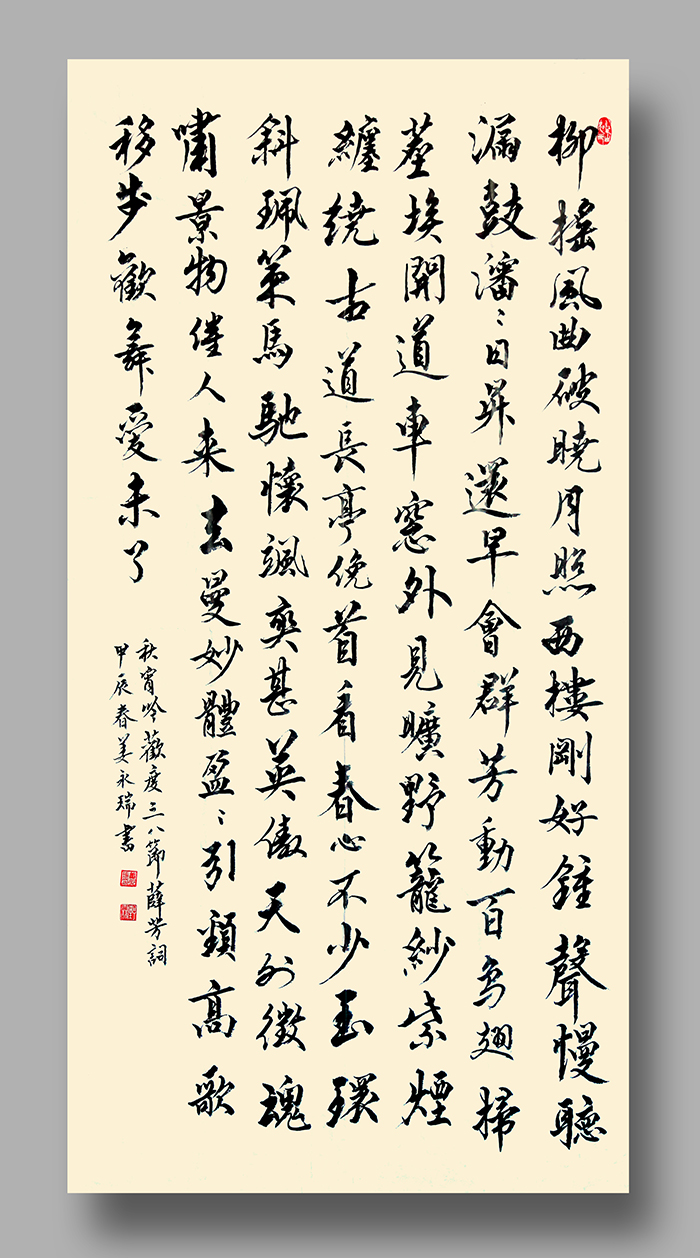 柳搖風曲破曉月照西樓剛好鍾聲慢聽
漏鼓瀋〻日昇還早會群芳動百鳥翅掃
塵埃開道車窓外見曠野籠紗紫煙
纏繞古道長亭俛首看春心不少玉環
斜珮策馬馳懷颯爽甚英傲天外徵魂
嘯景物催人来去曼妙體盈〻引頸高歌
移步歡舞愛未了
秋宵吟歡度三八節薛芳詞
甲辰春姜永瑞書